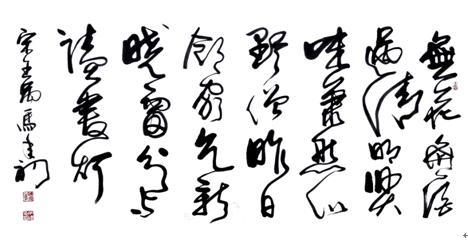 無花無酒
過清明興
味蕭然似
野僧昨日
鄰家乞新
曉窗分与
讀書灯
宋王禹